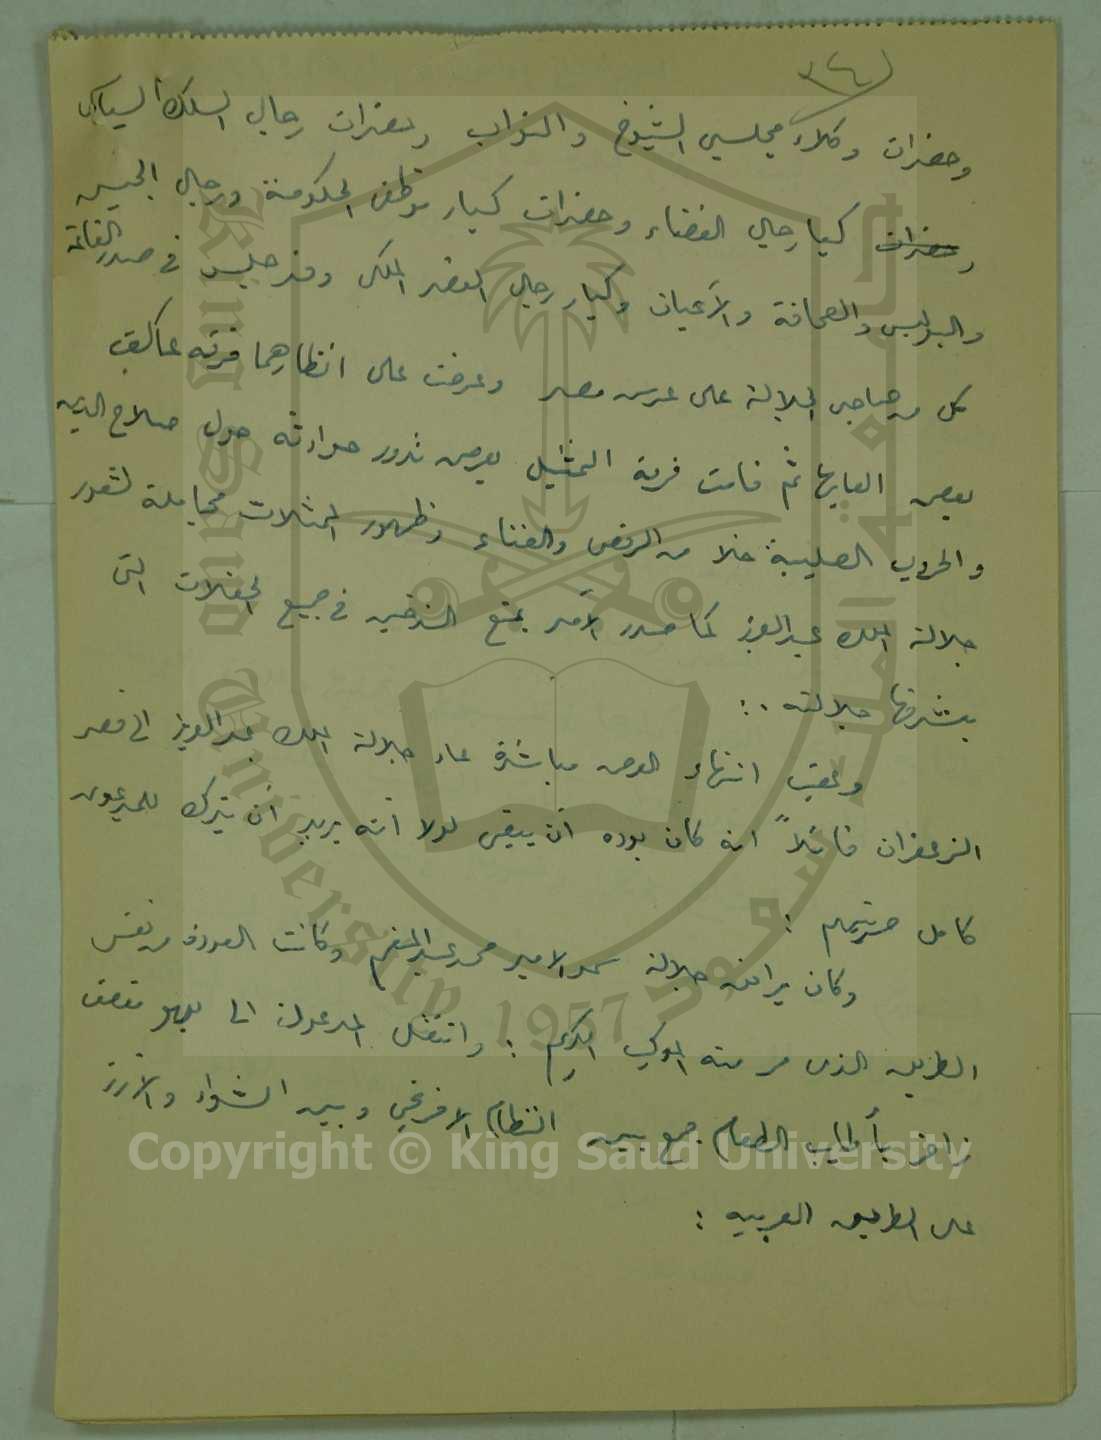 ٣٤١
وحضرات وكلاء مجلسي الشيوخ والنواب وحضرات رجال السلك السياسي
وحضرات كبار رجال القضاء وحضرات كبار موظفي الحكومة ورجال الجيش
والبوليس والصحافة والأعيان وكبار رجال القصر الملكى وقد جلس في صدر القاعة
كل من صاحبى الجلالة على عرس مصر وعرضت على انظارهما فرقة عاكف
بعض العابها ثم قامت فرقة التمثيل بعرض تدور حوادثه حول صلاح الدين
والحروب الصليبية خلا من الرقص والغناء وظهور الممثلات مجاملة لشعور
جلالة الملك عبدالعزيز كما صدر الأمر بمنع التدخين في جميع الحفلات التى
يشرفها جلالته :
وعقب انتهاء العرض مباشرة عاد جلالة الملك عبدالعزيز الى قصر
الزعفران قائلاً انه كان بوده أن يبقى لولا أنه يريد أن يترك للمدعوين
كامل حريتهم :
وكان يرافق جلالة سمو الامير محمد عبدالمنعم وكانت العودة من نفس
الطريق الذى مر منه الموكب الكريم : وانتقل المدعوون الى بهو مقصف
زاخر بأطايب الطعام جمع بين النظام الافرنجي وبين الشواء والأرز
على الطريقة العربيه :
King Saud University 1957
جامعة الملك سعود
Copyright © King Saud University